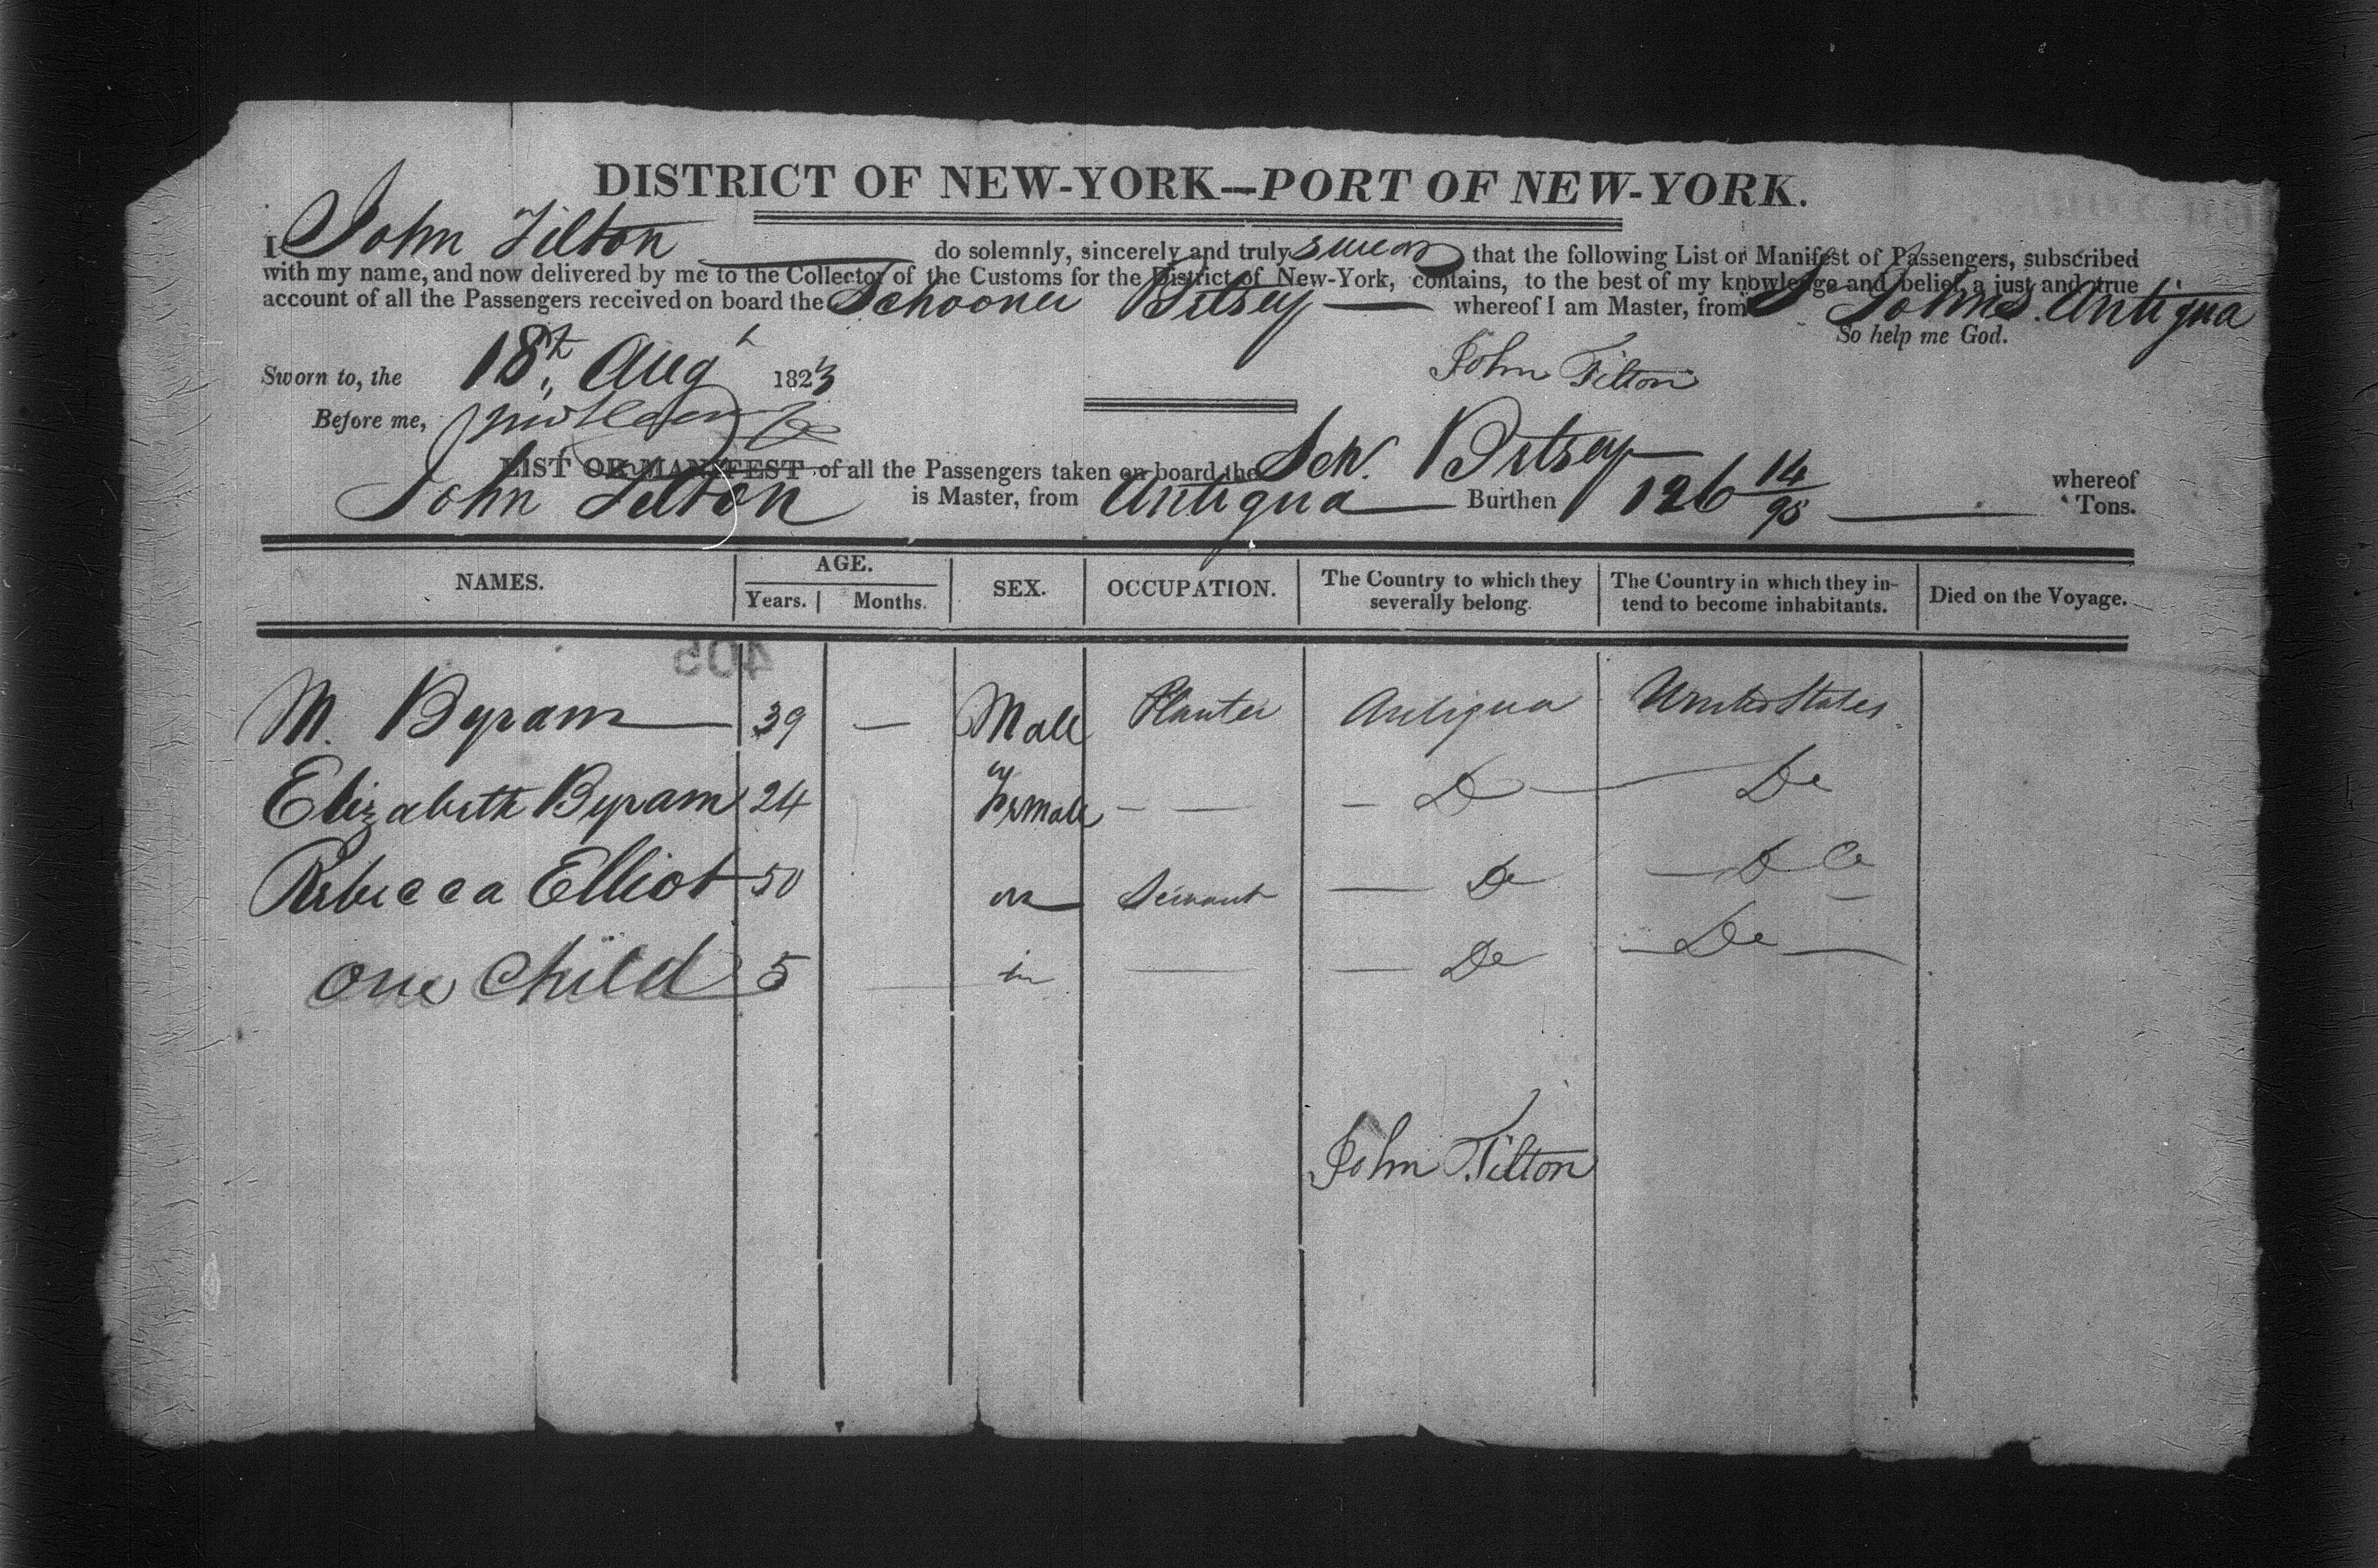 DISTRICT OF NEW-YORK—PORT OF NEW-YORK.
I John Tilton do solemnly, sincerely and truly swear that the following List or Manifest of Passengers, subscribed
with my name, and now delivered by me to the Collector of the Customs for the District of New-York, contains, to the best of my knowledge and belief, a just and true
account of all the Passengers received on board the Schooner Betsey whereof I am Master, from S Johns Antigua
So help me God.
Sworn to, the 18th Augt 1823 John Tilton
Before me,
LIST OR MANIFEST of all the Passengers taken on board the Sch. Betsey whereof
John Tilton is Master, from Antigua Burthen 126 14/95 Tons.
NAMES. AGE. Years. Months. SEX. OCCUPATION. The Country to which they severally belong. The Country in which they intend to become inhabitants. Died on the Voyage.
405
M. Byram 39 — Male Planter Antigua United States
Elizabeth Byram 24 Female — — — Do — Do
Rebecca Elliot 50 Servant — Do — Do
one Child 5 — — Do — Do —
John Tilton